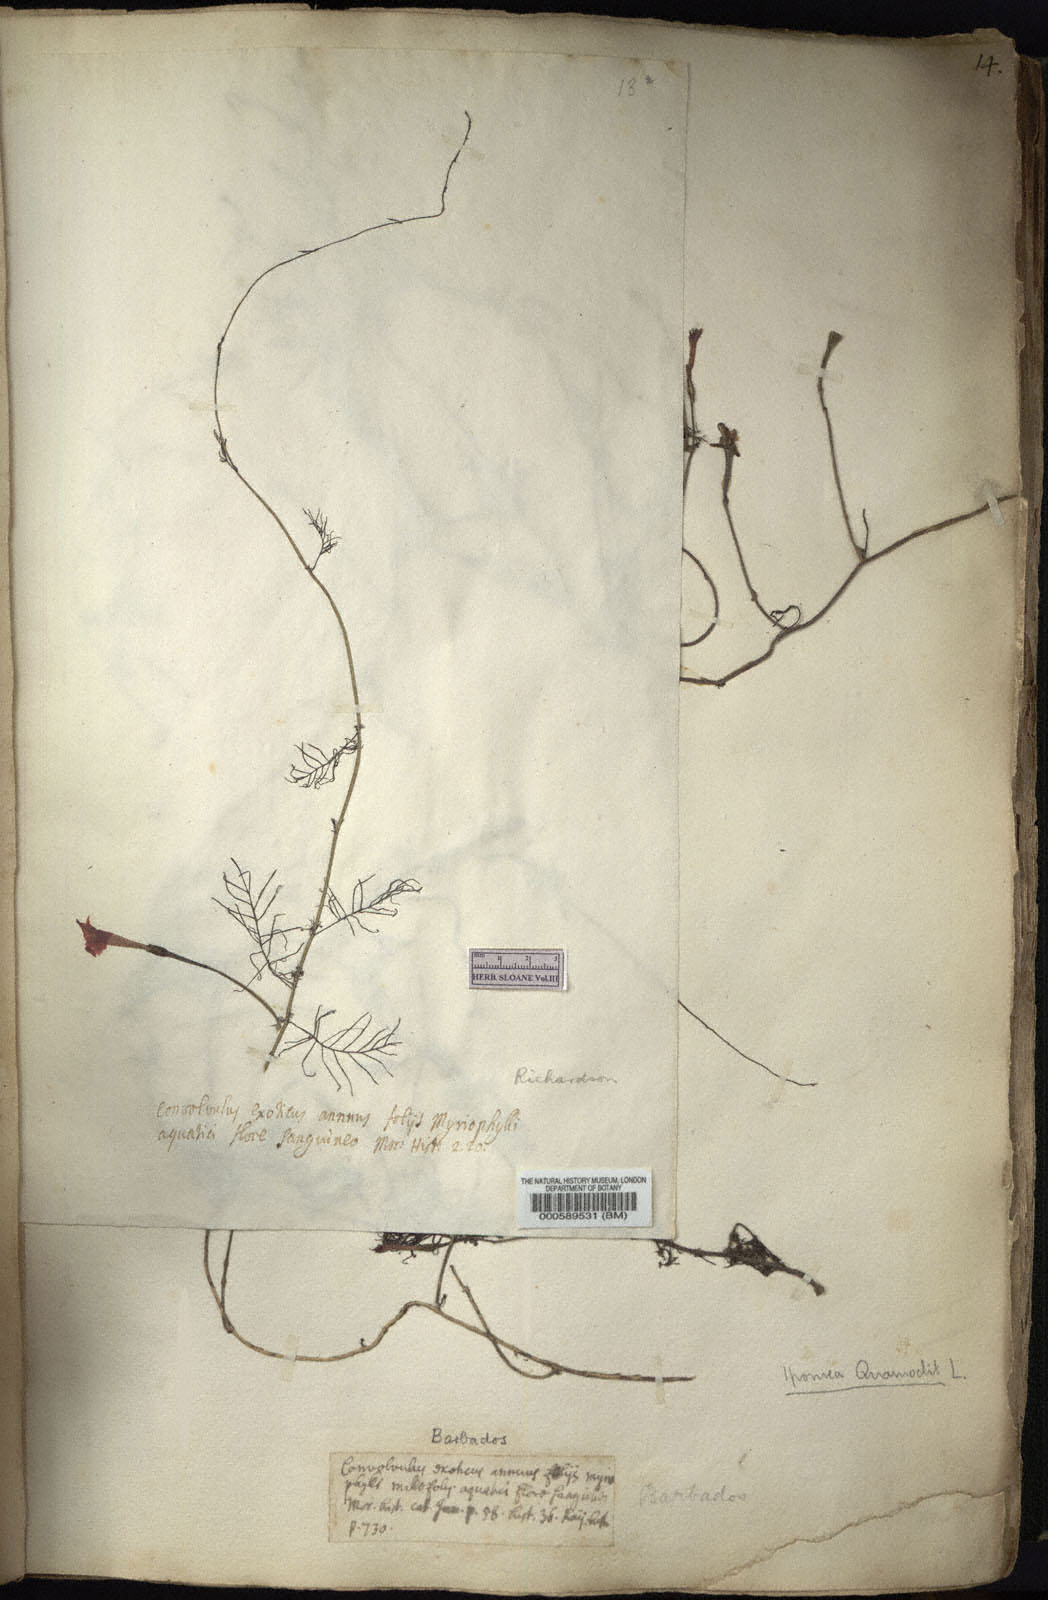 14.
18a
mm 1 2 3
HERB SLOANE Vol.III
Richardson
Convolvulus Exoticus annuus folijs Myriophylli
aquatici flore sanguineo Mor: Hist: 2 20.
THE NATURAL HISTORY MUSEUM, LONDON
DEPARTMENT OF BOTANY
000589531 (BM)
Ipomea Quamoclit L.
Barbados
Convolvulus exoticus annuus folijs myrio
phylli millefolij aquatici flore sanguineo
Mor. hist. cat. Jam. p. 58. hist. 36. Raij. hist.
p. 730.
Barbados